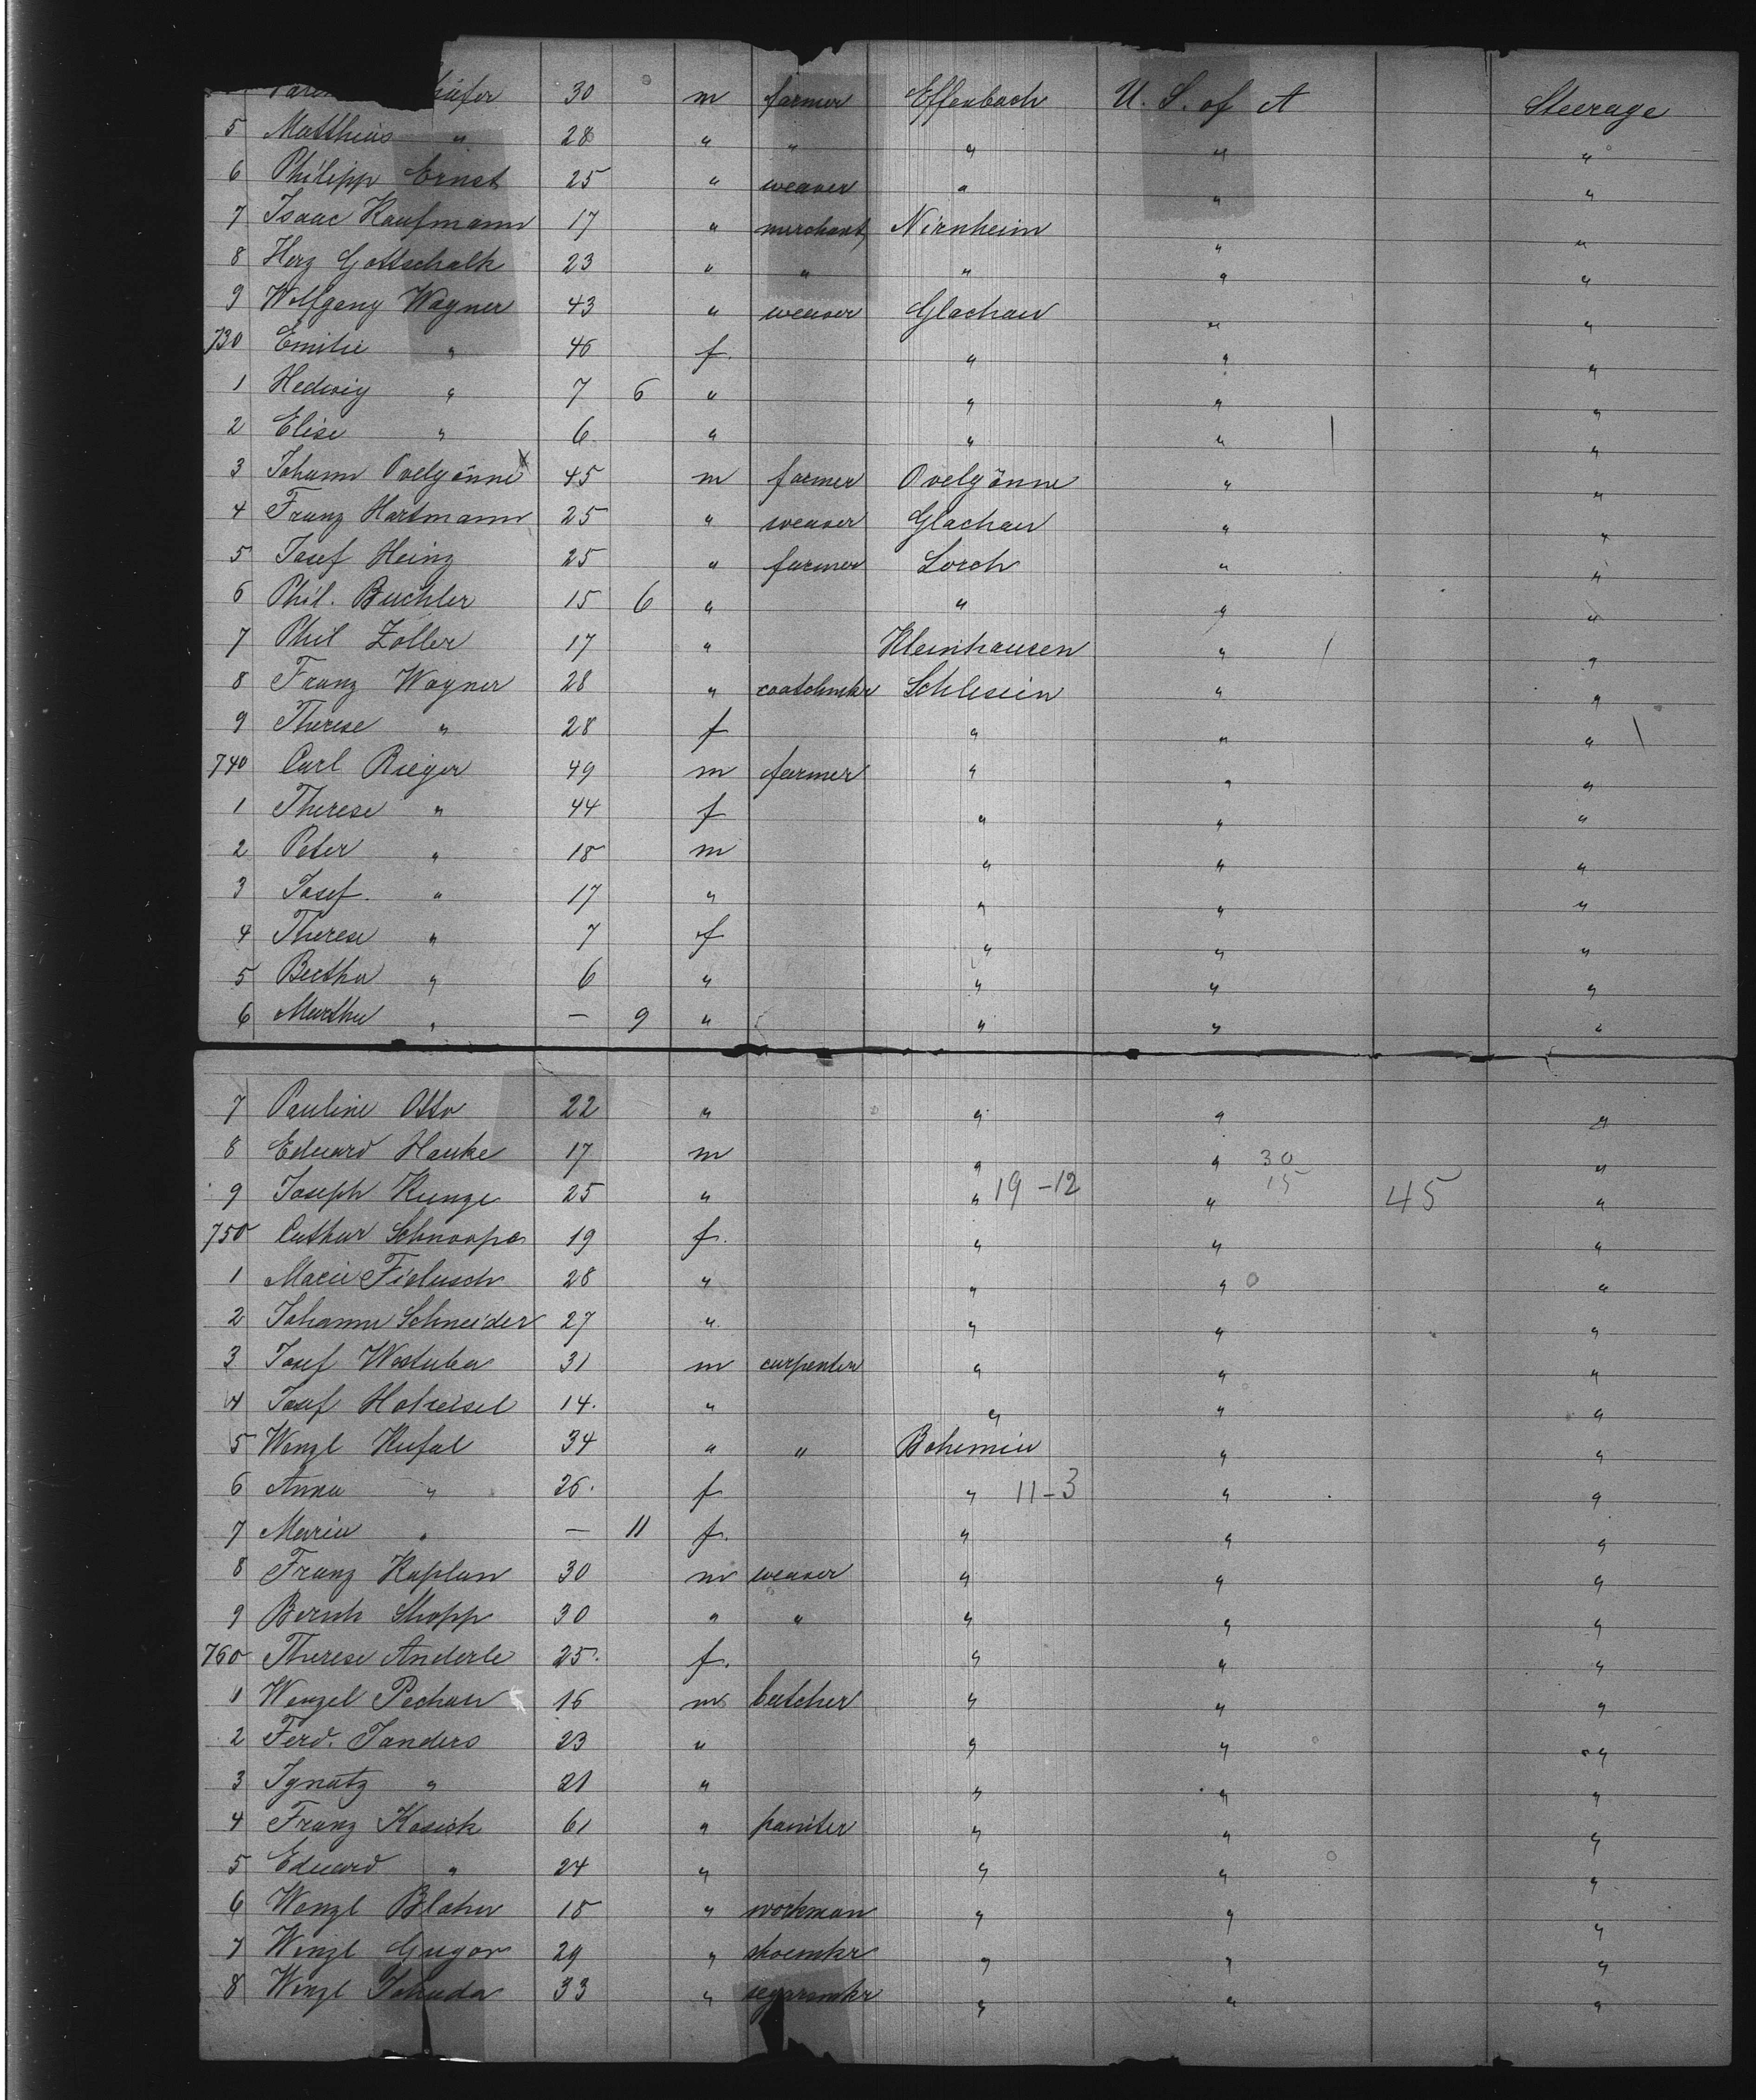 30 m farmer Effenbach U. S. of A Steerage
5 Matthias " 28 " " " " "
6 Philipp Ernst 25 " weaver " " "
7 Isaac Kaufmann 17 " merchant Nirnheim " "
8 Herz Gottschalk 23 " " " " "
9 Wolfgang Wagner 43 " weaver Glachau " "
730 Emilie " 46 f. " " "
1 Hedwig " 7 6 " " " "
2 Elise " 6 " " " "
3 Johann Ovelgönne 45 m farmer Ovelgönne " "
4 Franz Hartmann 25 " weaver Glachau " "
5 Josef Heinz 25 " farmer Lorch " "
6 Phil. Buchler 15 6 " " " "
7 Phil Zoller 17 " Kleinhausen " "
8 Franz Wagner 28 " Schlesein " "
9 Therese " 28 f " " "
740 Carl Rieger 49 m farmer " " "
1 Therese " 44 f " " "
2 Peter " 18 m " " "
3 Josef. " 17 " " " "
4 Therese " 7 f " " "
5 Bertha " 6 " " " "
6 Martha " — 9 " " " "
7 Pauline Otto 22 " " " "
8 Eduard Hauke 17 m " " 30 "
9 Joseph Kunze 25 " " 19-12 " 15 45 "
750 Schnoope 19 f. " " "
1 Marie Fielusch 28 " " " "
2 Johanna Schneider 27 " " " "
3 Josef Wostuba 31 m carpenter " " "
4 Josef Hotreisel 14. " " " "
5 Wenzl Kufal 34 " " Bohemia " "
6 Anna " 26. f " 11-3 " "
7 Maria " — 11 f. " " "
8 Franz Kaplan 30 m weaver " " "
9 Bernh Shopp 30 " " " " "
760 Therese Anderle 25. f. " " "
1 Wenzel Pechau 16 m butcher " " "
2 Ferd. Janders 23 " " " "
3 Ignatz " 21 " " " "
4 Franz Kosick 61 " painter " " "
5 Eduard " 24 " " " "
6 Wenzl Blaha 18 " workman " " "
7 Wenzl Gregor 29 " shoemkr " " "
8 Wenzl Jahuda 33 " segarmkr " " "